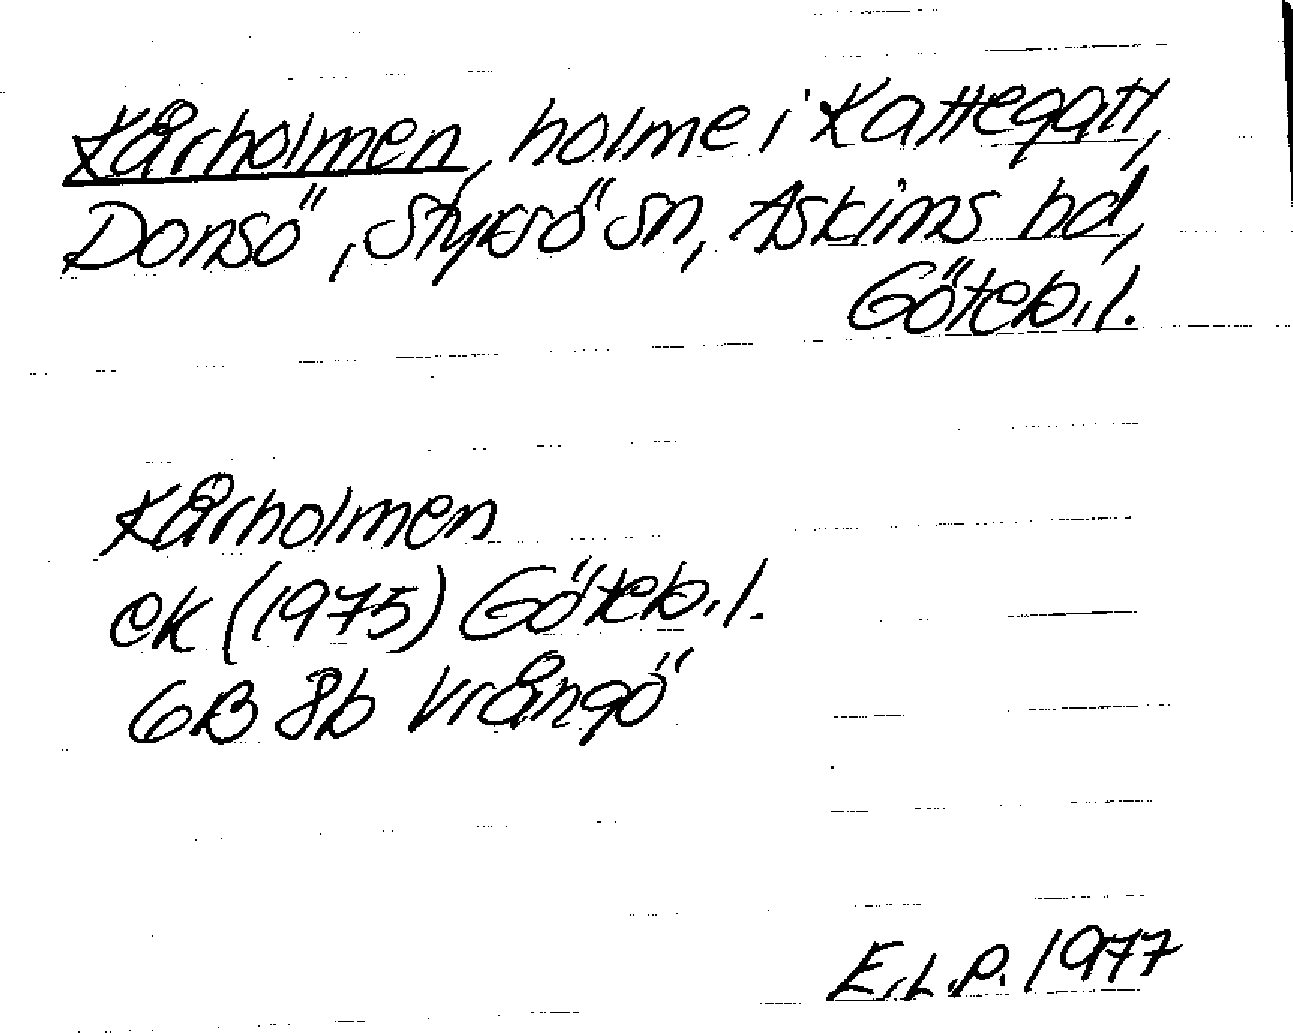 Kårholmen, holme i Kattegatt,
Donsö, Styrsö sn, Askims hd,
Göteb. l.
Kårholmen
ek (1975) Göteb. l.
6B 8b Vrångö
E.L.P. 1977